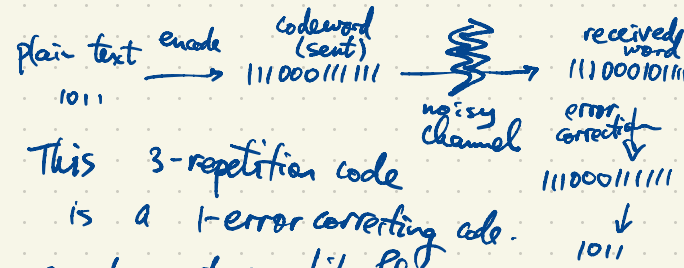 plain text
1011
encode
codeword
(sent)
111000111111
noisy
channel
received
word
error
correction
111000111111
1011
This 3-repetition code
is a 1-error correcting code.